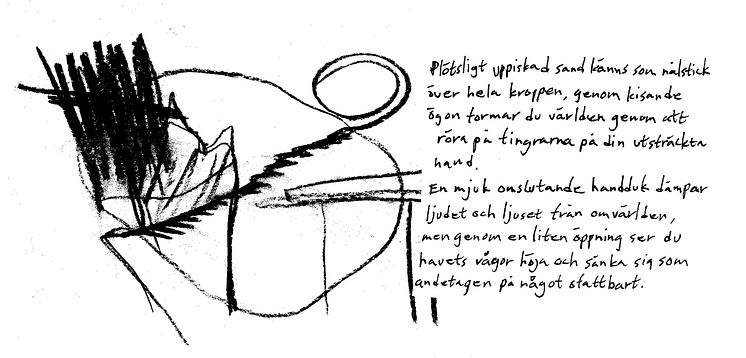 Plötsligt uppiskad sand känns som nålstick
över hela kroppen, genom kisande
ögon formar du världen genom att
röra på fingrarna på din utsträckta
hand.
En mjuk omslutande handduk dämpar
ljudet och ljuset från omvärlden,
men genom en liten öppning ser du
havets vågor höja och sänka sig som
andetagen på något ofattbart.